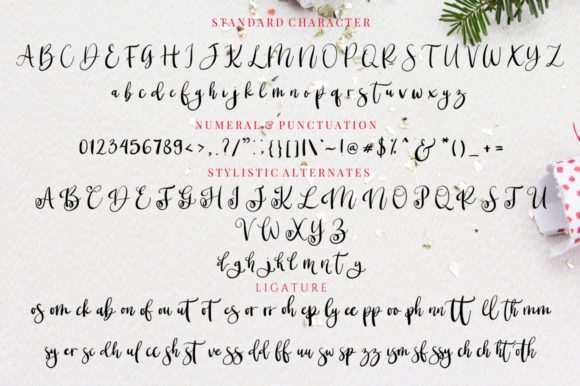 STANDARD CHARACTER
A B C D E F G H I J K L M N O P Q R S T U V W X Y Z
a b c d e f g h i j k l m n o p q r s t u v w x y z
NUMERAL & PUNCTUATION
0123456789<>,.?/":;{}[]|\'~!@#$%^&*()_+=
STYLISTIC ALTERNATES
A B C D E F G H I J K L M N O P Q R S T U
V W X Y Z
d g h j k l m n t y
LIGATURE
os om ck ab on of ou ut ot es or rr oh ep ly ee pp oo ph nn tt ll th mm
sy er sc dh ul cc sh st ve ss dd ff uu sw sp zz ism sf ssy ch ck ht oth